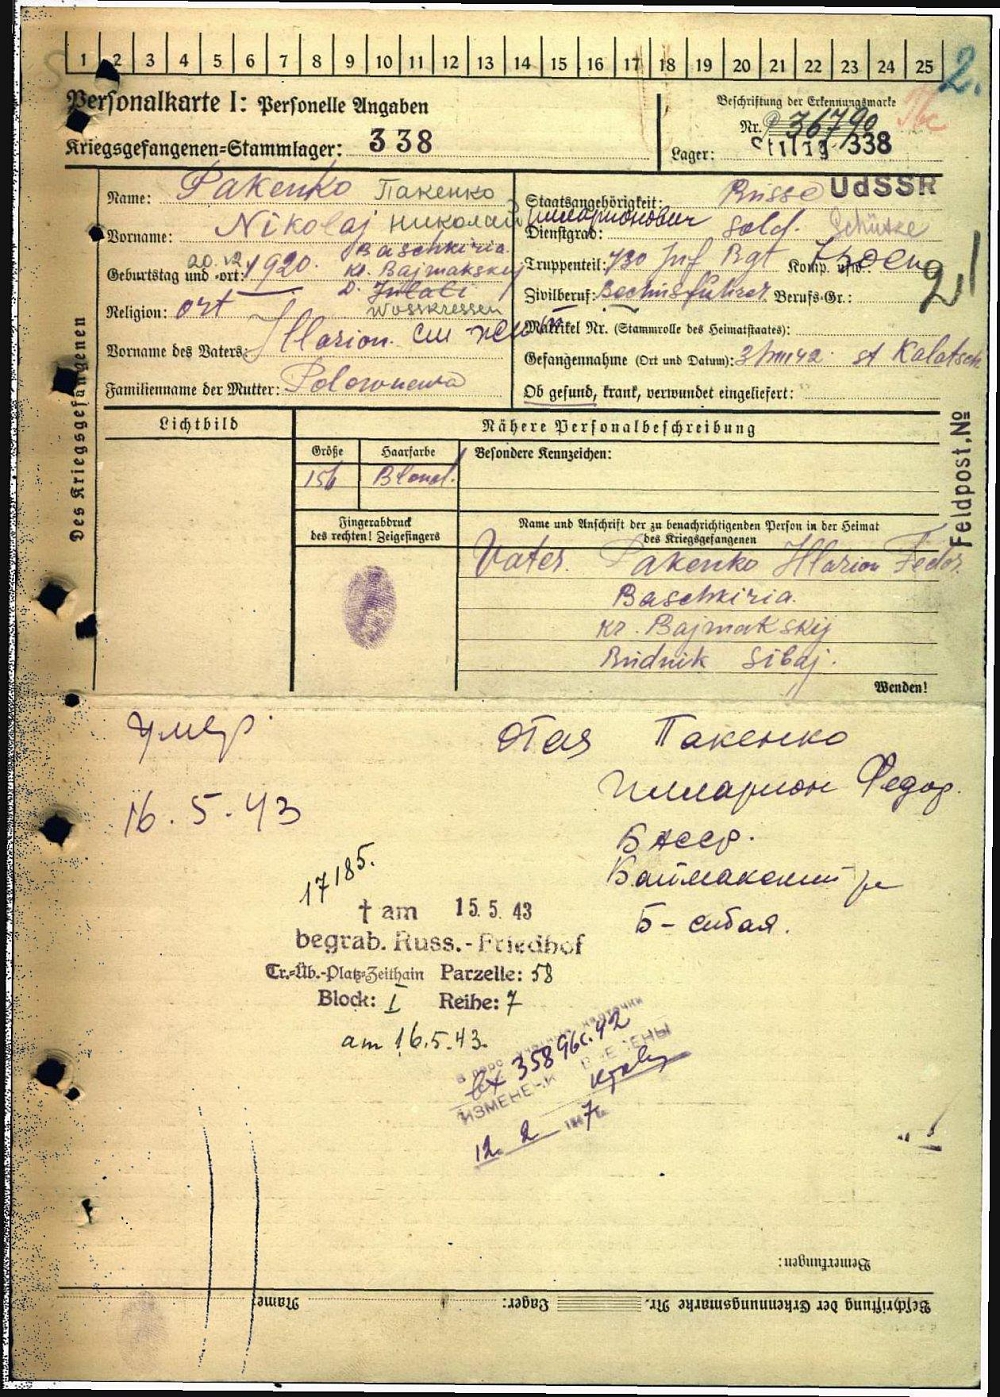 1 2 3 4 5 6 7 8 9 10 11 12 13 14 15 16 17 18 19 20 21 22 23 24 25
2.
Personalkarte I: Personelle Angaben
Kriegsgefangenen-Stammlager: 338
Beschriftung der Erkennungsmarke
Nr. 36790
Tbc
Lager: Stalag 338
Des Kriegsgefangenen
Name: Pakenko Пакенко
Vorname: Nikolaj Николай Илларионович
Geburtstag und -ort: 1920. Baschkiria. Kr. Bajmakskij
D.
Wosskressen
Religion: ort
Vorname des Vaters: Illarion.
Familienname der Mutter:
Staatsangehörigkeit: Russe UdSSR
Dienstgrad: Sold. Schütze
Truppenteil: 730 Inf Rgt Komp. usw.:
Zivilberuf: Berufs-Gr.:
Matrikel Nr. (Stammrolle des Heimatstaates):
Gefangennahme (Ort und Datum): st Kalatsch
Ob gesund, krank, verwundet eingeliefert:
Lichtbild
Nähere Personalbeschreibung
Größe Haarfarbe Besondere Kennzeichen:
156 Blond.
Fingerabdruck
des rechten! Zeigefingers
Name und Anschrift der zu benachrichtigenden Person in der Heimat
des Kriegsgefangenen
Vater. Pakenko Illarion Fedor.
Baschkiria.
Kr. Bajmakskij
Rudnik Sibaj.
Wenden!
Feldpost.№
умер
16.5.43
Пакенко
Илларион Федор.
БАССР.
Баймакский р
Б-сибая.
17185.
† am 15.5.43
begrab. Russ.-Friedhof
Tr.-Üb.-Platz-Zeithain Parzelle: 58
Block: I Reihe: 7
am 16.5.43.
Вх 35896с.42
12. 2
Bemerkungen:
Name: Lager: Beschriftung der Erkennungsmarke Nr.